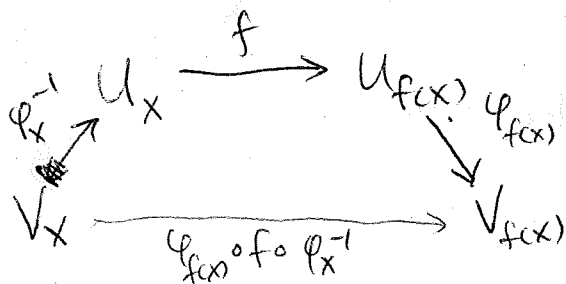 f
φ_x^{-1} U_x → U_{f(x)} φ_{f(x)}
V_x → V_{f(x)}
φ_{f(x)} ∘ f ∘ φ_x^{-1}